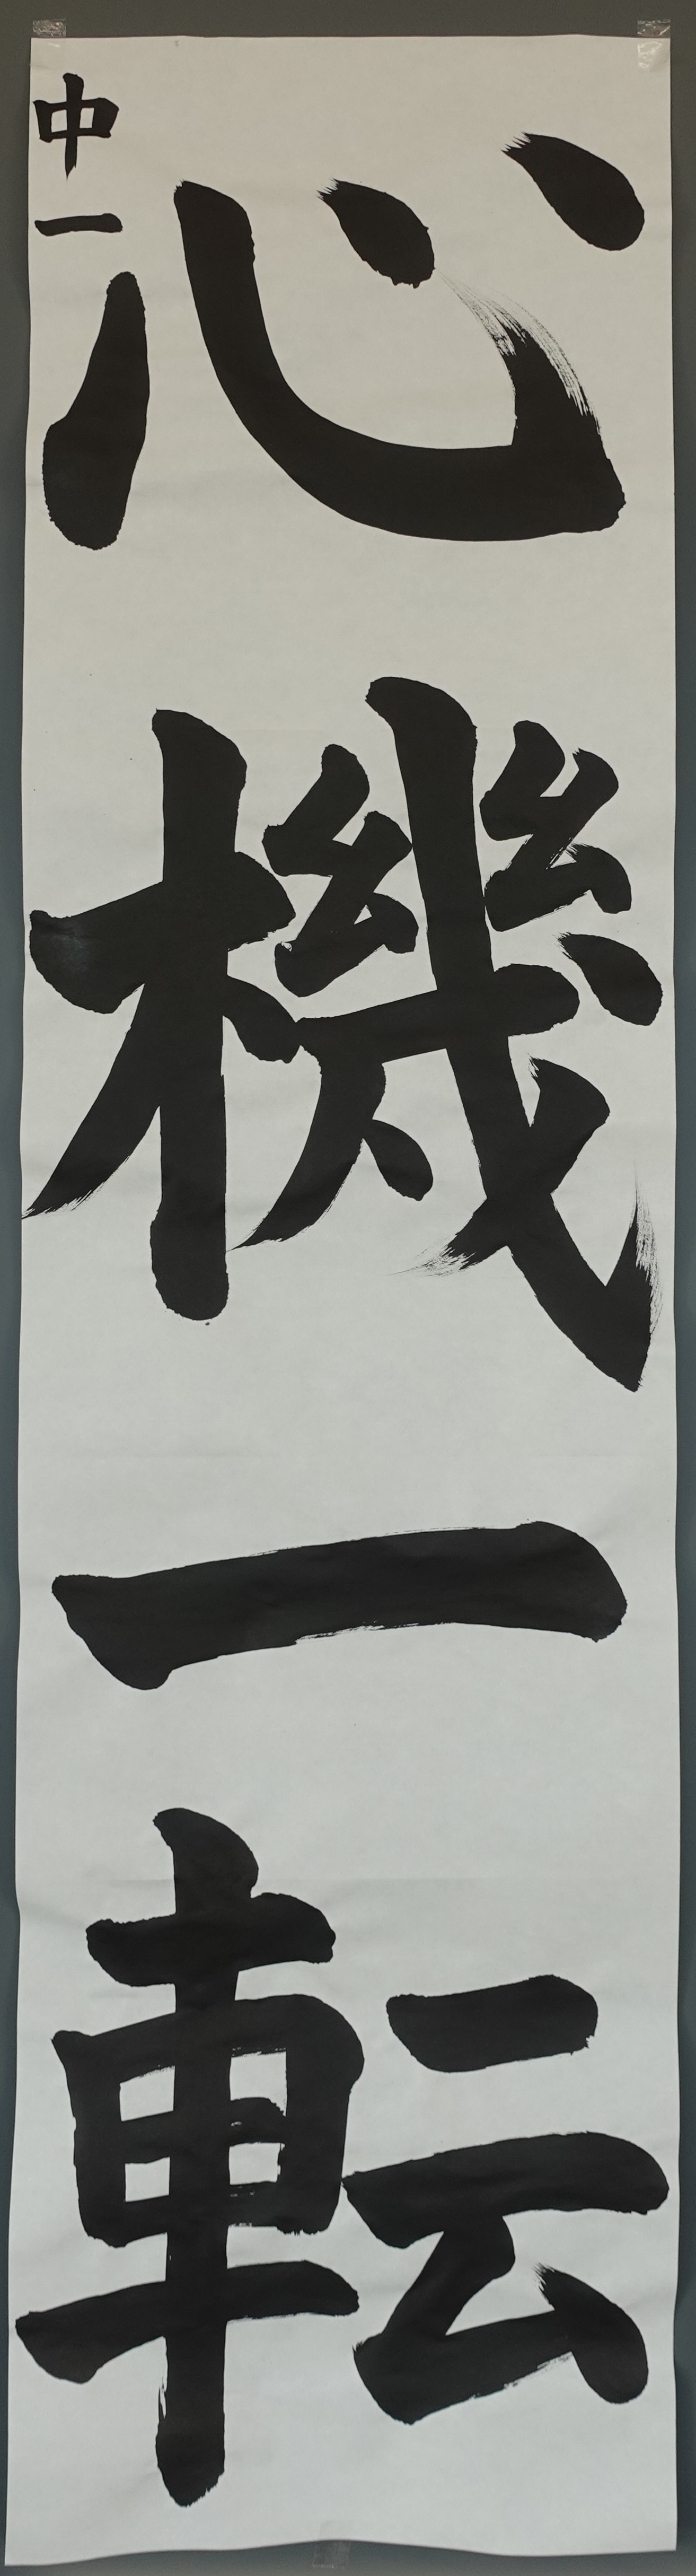 心機一転
中一